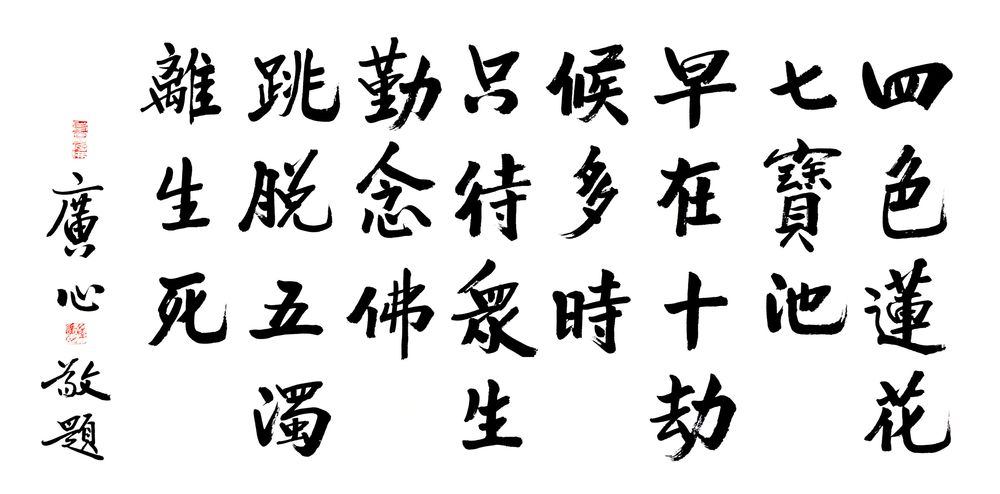 四色蓮花
七寶池
早在十劫
候多時
只待眾生
勤念佛
跳脱五濁
離生死
廣心敬題